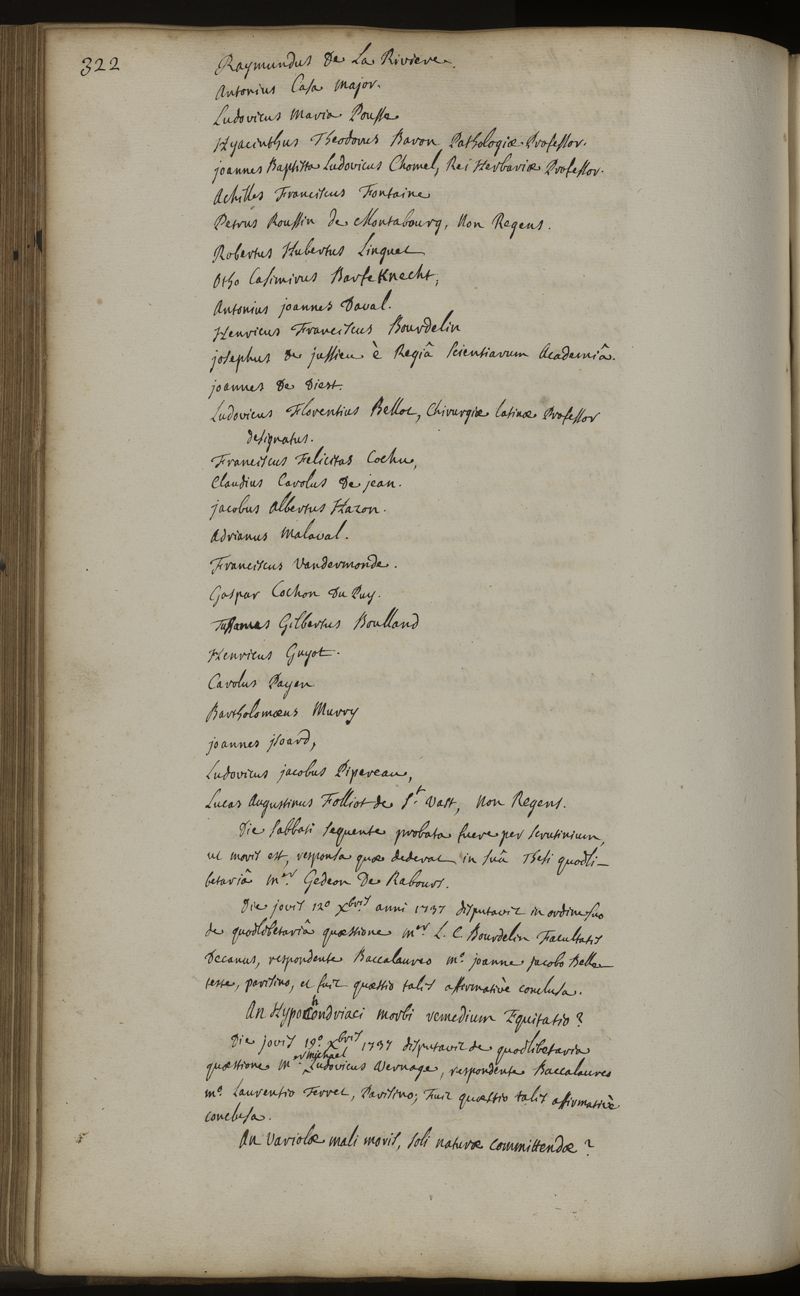 322
Raymundus De La Riviere.
Antonius Casa major.
Ludovicus Maria Pousse
Hyacinthus Theodorus Baron Pathologiæ Professor.
joannes Baptista Ludovicus Chomel, Rei Herbariæ Professor.
Achilles Franciscus Fontaine
Petrus Roussin de Montabourg, Non Regens.
Robertus Hubertus Linguet
Otho Casimirus Barfeknecht,
Antonius joannes Daval.
Henricus Franciscus Bourdelin
josephus de jussieu è Regiâ Scientiarum Academiâ.
joannes De Diest.
Ludovicus Florentius Bellot, Chirurgiæ latinæ Professor
designatus.
Franciscus Felicitas Cochu,
Claudius Carolus De jean.
jacobus Albertus Hazon.
Adrianus Malaval.
Franciscus Vandermonde.
Gaspar Cochon Du Puy.
Gilbertus Boulland
Henricus Guyot.
Carolus Payen
Bartholomæus Murry
joannes jsoard,
Ludovicus jacobus Pipereau,
Lucas Augustinus Folliot de St. Vast, Non Regens.
Die Sabbati sequente probata fuere per scrutinium,
ut moris est, responsa quæ dederat in suâ Thesi quodli-
betariâ mer. Gedeon De Rabours.
Die jovis 12º Xbris anni 1737 disputavit in ordine suo
de quodlibetariâ quæstione mer L. C. Bourdelin Facultatis
Decanus, respondente Baccalaureo mº. joanne jacobo Belle-
teste, parisino, et fuit quæstio talis affirmativè conclusa.
An Hypochondriaci morbi remedium Equitatio?
Die jovis 19º Xbris 1737 disputavit de quodlibetaria
quæstione Mer michael Ludovicus Vernage, respondente Baccalaureo
mº Laurentio Ferret, Parisino; Fuit quæstio talis affirmativè
conclusa.
An Variolæ mali moris, soli naturæ committendæ?